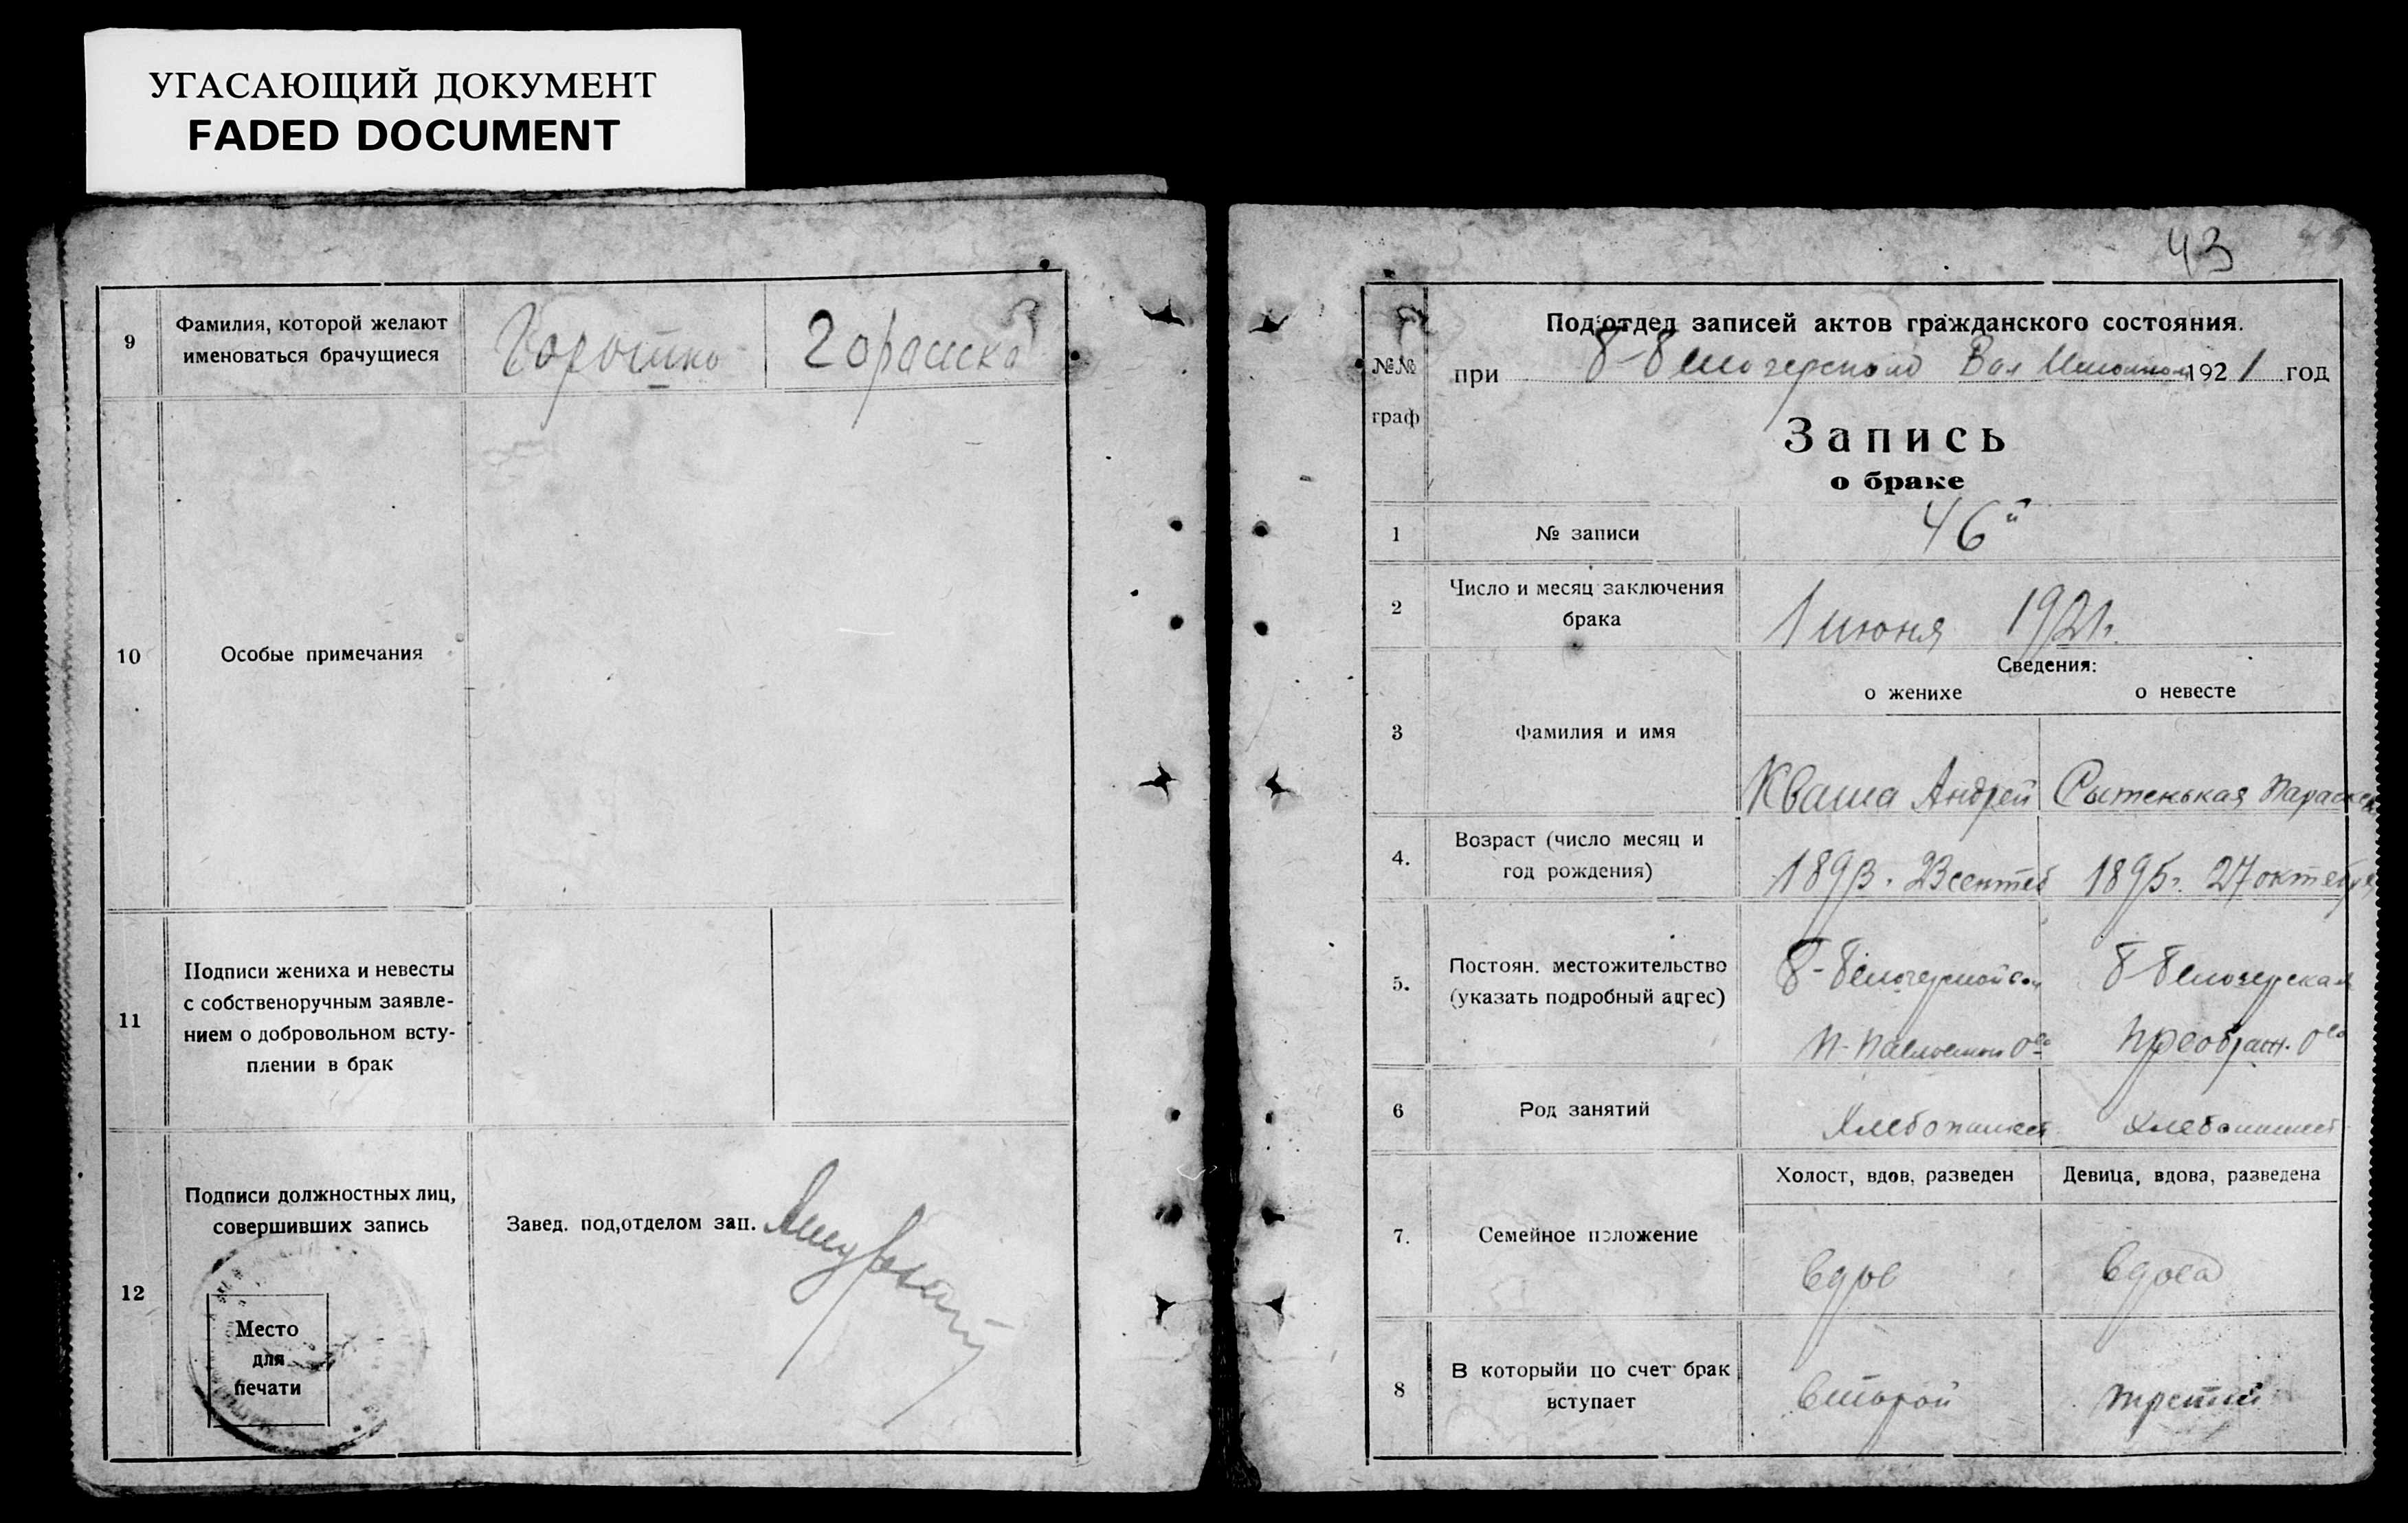 УГАСАЮЩИЙ ДОКУМЕНТ
FADED DOCUMENT
9
Фамилия, которой желают
именоваться брачущиеся
Горошко
Горошко
10
Особые примечания
11
Подписи жениха и невесты
с собственоручным заявле-
нием о добровольном всту-
плении в брак
12
Подписи должностных лиц,
совершивших запись
Завед. под,отделом зап.
Место
для
печати
43
№№
граф
Под'отдел записей актов гражданского состояния.
при Б-Белозерском Вол 1921 год
Запись
о браке
1
№ записи
46й
2
Число и месяц заключения
брака
1 июня 1921г.
Сведения:
о женихе
о невесте
3
Фамилия и имя
Кваша Андрей
Сытенькая Параскев
4.
Возраст (число месяц и
год рождения)
1893. 23 сентеб
1895г. 27 октебря
5.
Постоян. местожительство
(указать подробный адрес)
Б-Белозерской вол
П-Павловской Ова
Б-Белозерская
Преображ. Ова
6
Род занятий
Хлебопашест
Хлебопашест
7.
Семейное положение
Холост, вдов, разведен
Девица, вдова, разведена
вдов
вдова
8
В которыйи по счет брак
вступает
второй
третий